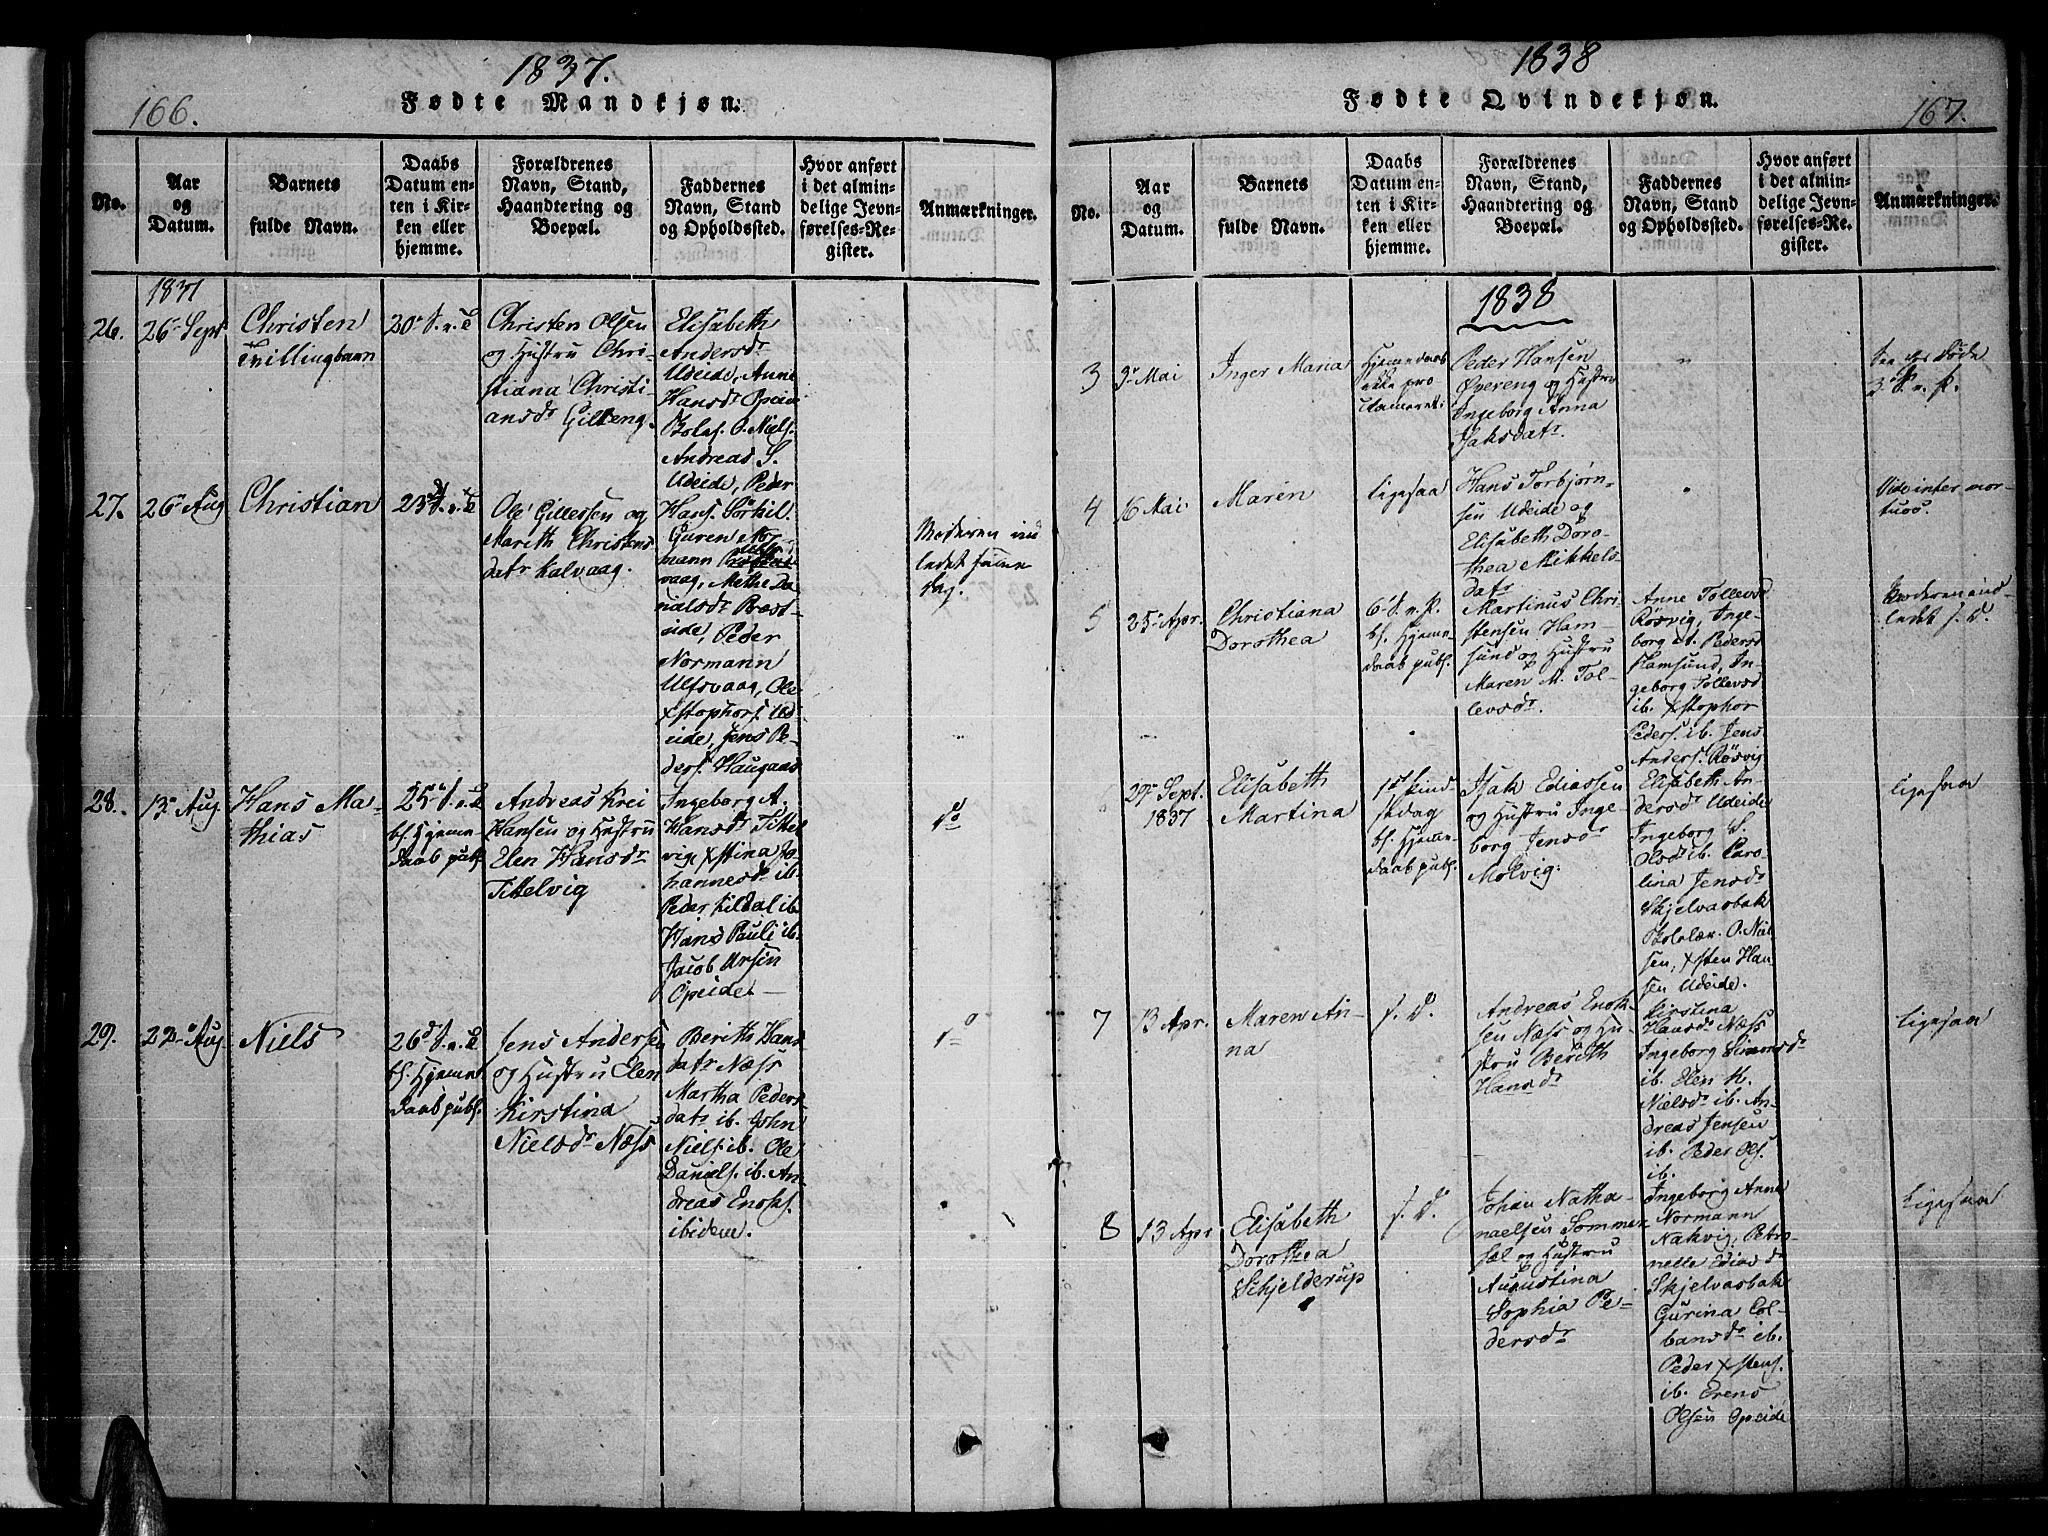 1837.
166.
Fødte Mandkjøn.
No.
Aar
og
Datum.
Barnets
fulde Navn.
Daabs
Datum en-
ten i Kir-
ken eller
hjemme.
Forældrenes
Navn, Stand,
Haandtering og
Boepæl.
Faddernes
Navn, Stand
og Opholdssted.
Hvor anført
i det almin-
delige Jevn-
førelses-Re-
gister.
Anmærkninger.
1837
26.
26. Sept
Christen
Tvillingbarn
20. S. e. T
Christen Olsen
og Hustru Chri-
stiana Christi-
ansdr Gilleng.
Elisabeth
Andersdr
Udeide, Anne
Hansdr Opeide
O. Niels.
Andreas S.
Udeide, Peder
Hans. Sørkil.
27.
26. Aug
Christian
23. S. e. T
Ole Gillersen og
Mareth Christens
datr Kalvaag.
Guren Nor-
mann Ulfs-
vaag, Methe Da-
nielsdr Brest-
eide, Peder
Normann
Ulfsvaag, Ole
Xstophers. Ud-
eide, Jens Pe-
ders. Haugaas
Moderen ind
ledet samme
Dag.
28.
13. Aug
Hans Ma-
thias
25. S. e. T
bs. Hjemme
daab publ.
Andreas Krei
Hansen og Hustru
Elen Hansdr
Tittelvig
Ingeborg A.
Hansdr Tittel
vig, Xstina Jo-
hannesdr ib.
Peder Kildal ib.
Hans Pauli ib.
Jacob Ursin
Opeide
do
29.
22. Aug
Niels
26d S. e. T
bs. Hjemme
daab publ.
Jens Andersen
og Hustru Elen
Kirstina
Nielsdr Næss
Berith Hans
datr Næss
Martha Peders
datr ib. John
Niels. ib. Ole
Daniels. ib. An-
dreas Enoks.
ibidem.
do
1838
167.
Fødte Qvindekjøn.
No.
Aar
og
Datum.
Barnets
fulde Navn.
Daabs
Datum en-
ten i Kir-
ken eller
hjemme.
Forældrenes
Navn, Stand,
Haandtering og
Boepæl.
Faddernes
Navn, Stand
og Opholdssted.
Hvor anført
i det almin-
delige Jevn-
førelses-Re-
gister.
Anmærkninger.
1838
3
3. Mai
Inger Maria
Hjemmedaab
pro
Peder Hansen
Øvereng og Hustru
Ingeborg Anna
Isaksdatr.
"
See Døde
3.
4
16 Mai
Maren
ligesaa
Hans Torbjørn-
sen Udeide og
Elisabeth Doro-
thea Mikkels
datr
"
Vide inter mor-
tuos.
5
25. Apr.
Christiana
Dorothea
6. S. e. P.
bs. Hjemme
daab publ.
Martinus Chri-
stensen Ham-
sund og Hustru
Maren M. Tol-
levsdr.
Anne Tollevsd
Røsvig, Inge-
borg A. Pedersd
Hamsund, In-
geborg Tollevsd
ib. Xstophor
Peders. ib. Jens
Anders. Røsvig
Moderen ind-
ledet s. D.
6
29. Sept.
1837
Elisabeth
Martina
1st Pind-
sedag
bs. Hjemme-
daab publ.
Isak Ediassen
og Hustru Inge-
borg Jensdr
Molvig.
Elisabeth An-
dersdr Udeide
Ingeborg S.
Olsdr ib. Caro-
lina Jensdr
Skjelvasbak
O. Niel
sen, Xsten Han-
sen Udeide.
ligesaa
7
13 Apr.
Maren An-
na
s. D.
Andreas Enok-
sen Næss og Hu-
stru Berith
Hansdr
Kirstina
Hansdr Næss
Ingeborg Simonsdr
ib. Elen K.
Nielsdr ib. An-
dreas Jensen
ib. Peder Ols.
ib.
ligesaa
8
13 Apr
Elisabeth
Dorothea
Schjelderup
s. D.
Johan Natha-
naelsen Sommer
sæl og Hustru
Augustina
Sophia Pe-
dersdr
Ingeborg Anne
Normann
Nakvig, Petro-
nelle Ediasdr
Skjelvasbak
Gurina Col-
bansdr ib.
Peder Xstens.
ib. Erens
Olsen Opeide
Ligesaa